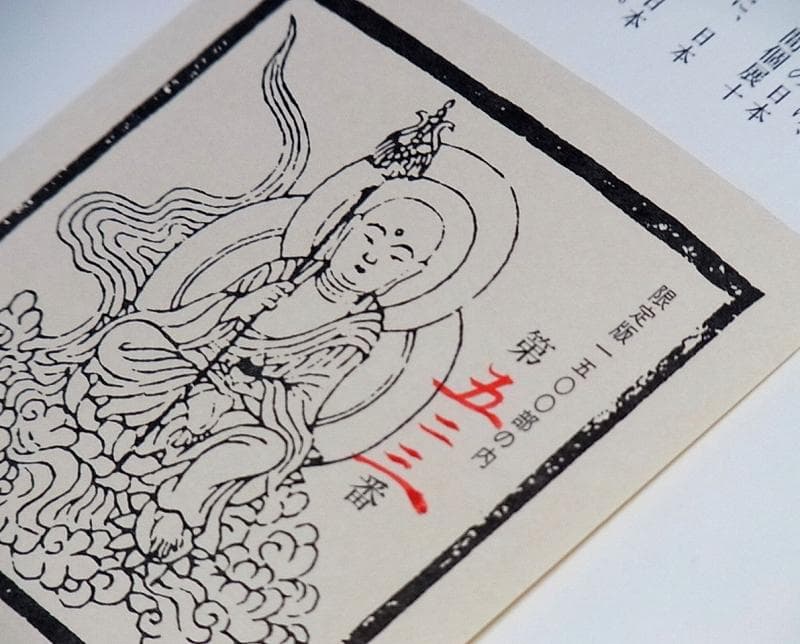 日本
間個展十
日本
日本
限定版一五〇〇部の内
第五二三番